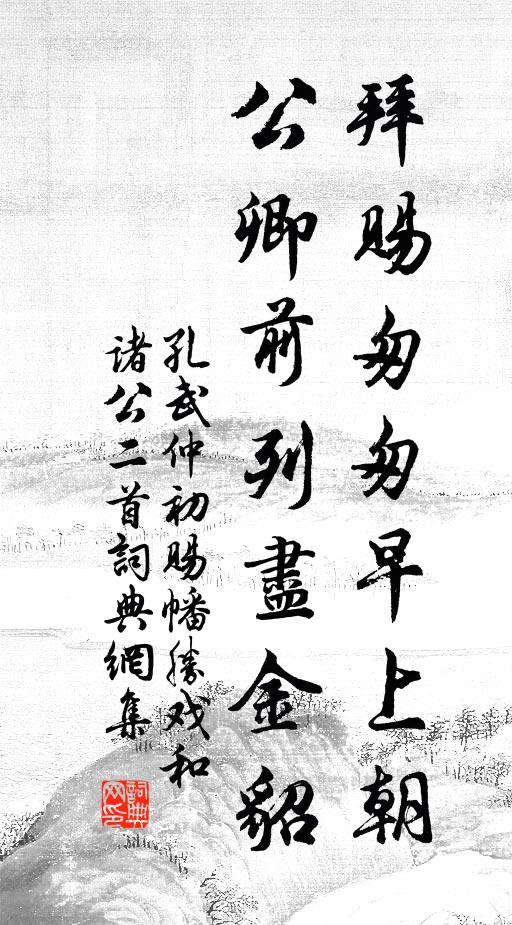 拜賜匆匆早上朝
公卿前列盡金貂
孔武仲初賜幡勝戏和
诸公二首詞典網集
詞典
网印